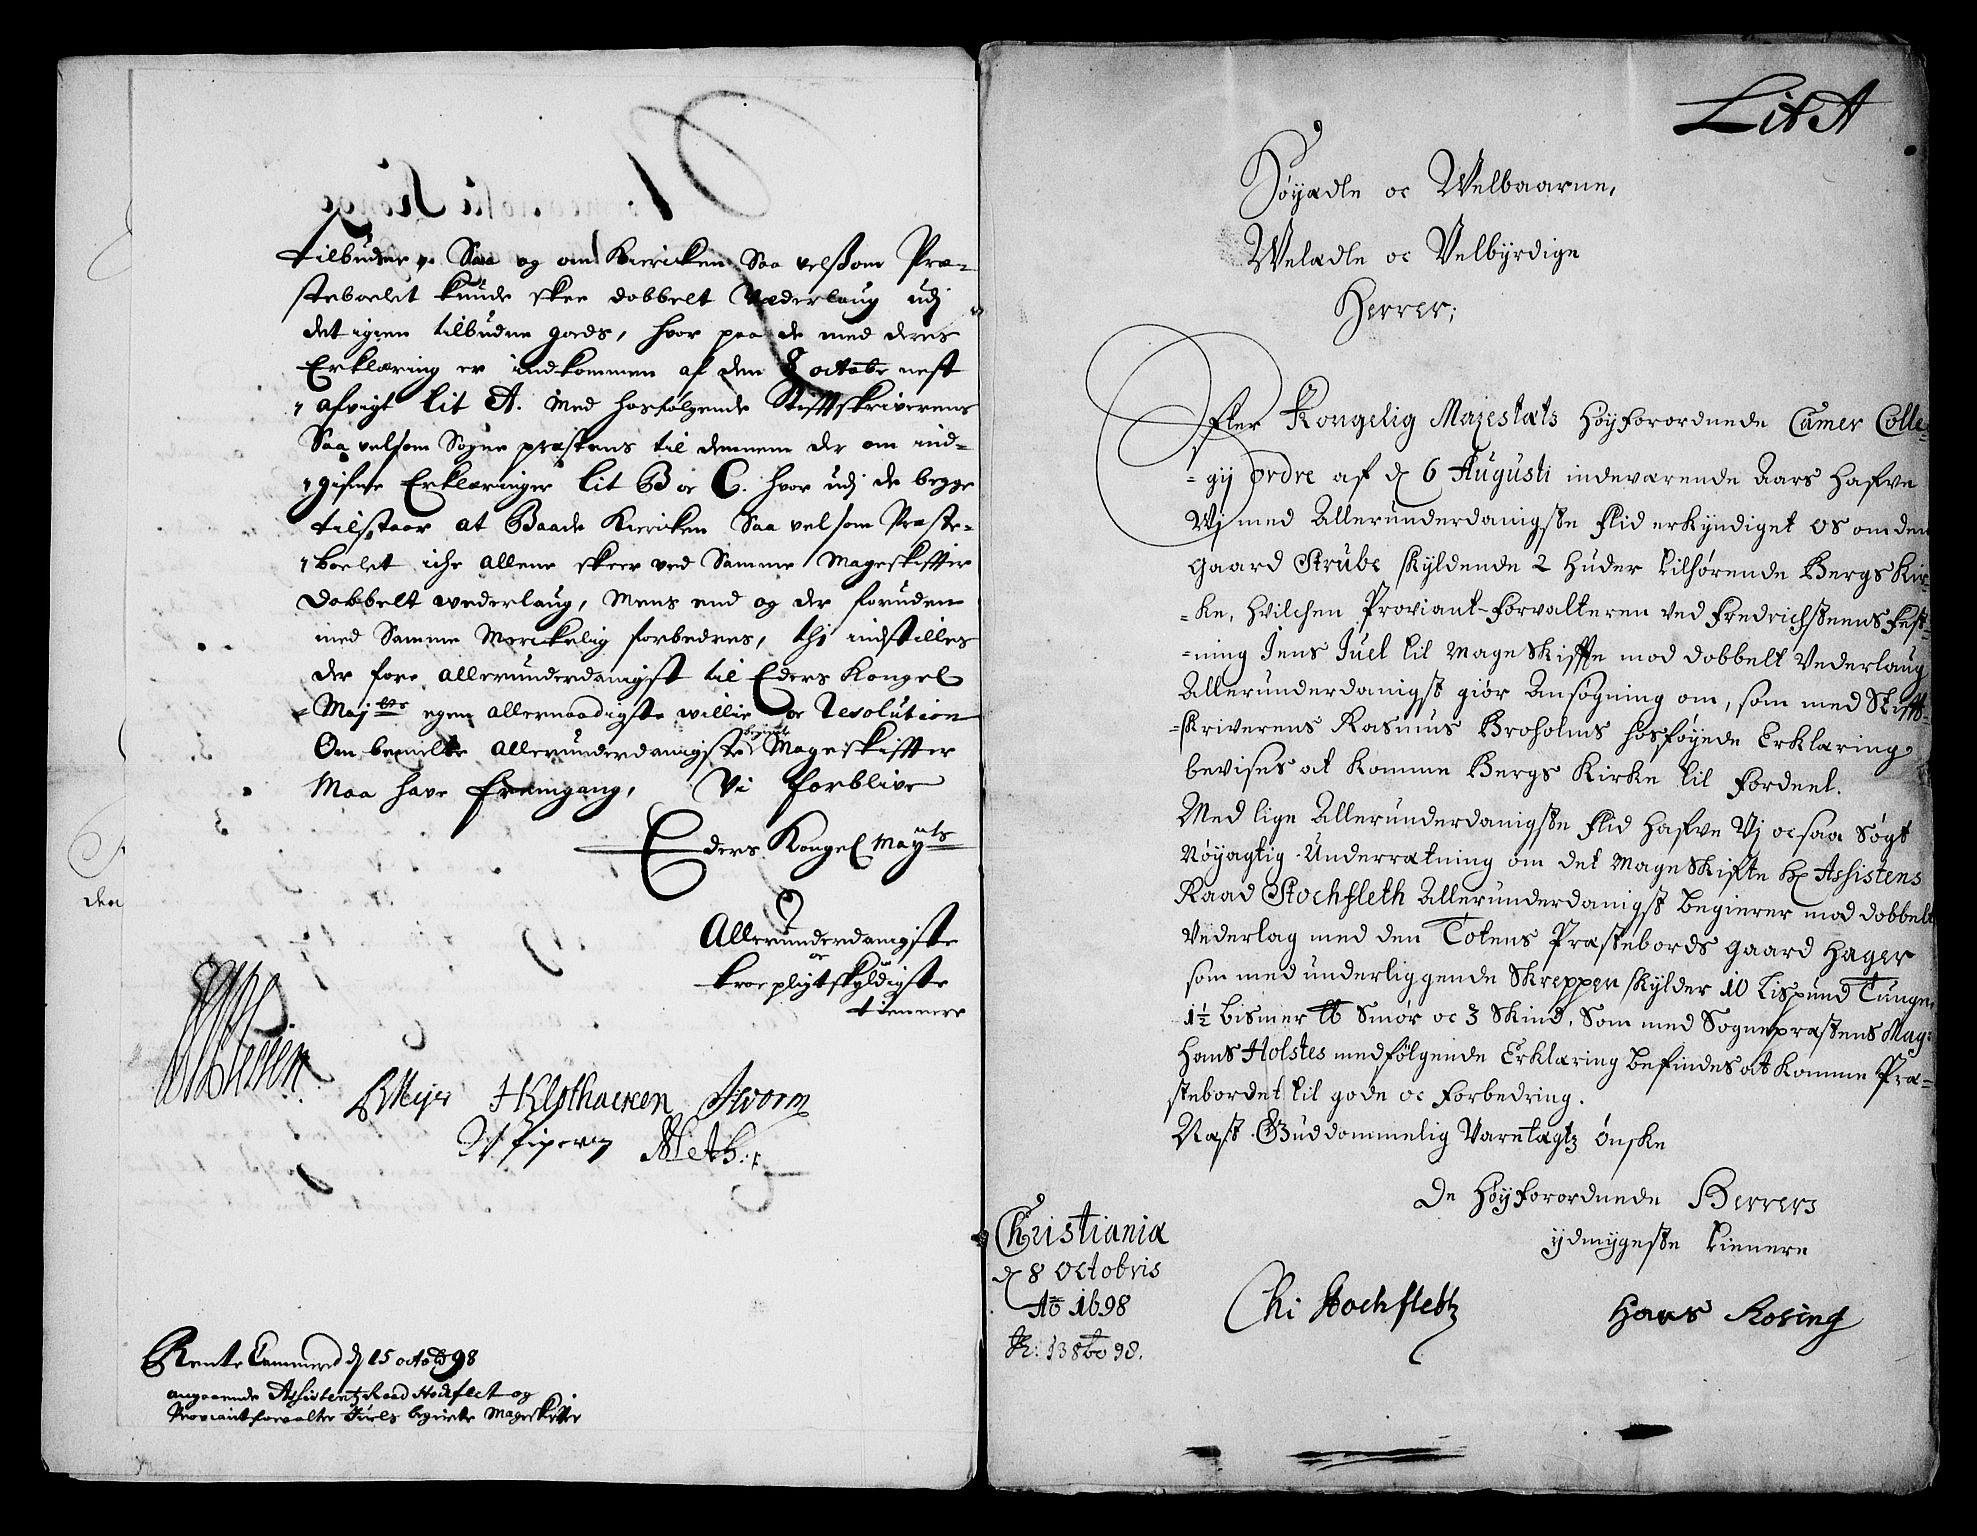 tilbudne, Saa og om Kiericken Saa velsom Præ-
steboelet kunde skee dobbelt Vederlaug udj
det igien tilbudne gods, hvor paa de med deres
Erklæring er indkommen af den 8 octobr nest
afvigt Lit A. med hosfølgende Stifftskriverens
Saa velsom Sogne præstens til dennem der om ind-
gifne Erklæringer Lit B oc C. hvor udj de begge
tilstaar at Baade Kiericken Saa vel som Præste-
boelet iche allene skeer ved Samme Mageskiffte
dobbelt wederlaug, Mens end og der foruden
med Samme Merckelig forbedres, thj indstilles
der fore allerunderdanigst til Eders Kongel
Maj.ts egen allernaadigste willie oc Resolution
Om bemelte allerunderdanigste begierte Mageskiffter
Maa have fremgang, Vi forblive
Eders Kongel Mayts
Allerunderdanigste
oc
troe pligtskyldigste
tiennere
Meyer HKlothacken JWorm
Rente Cammered d 15 octob 98
angaaende Assistentz Raad Stockflet og
Proviantforvalter Juels begierte Mageskiffte
den
Lit A
Høyædle oc Welbaarne,
Welædle oc Velbyrdige
Herrer;
Efter Kongelig Majestæts Høyforordnede Camer Colle-
gij ordre af d 6 Augusti indeværende Aars hafve
Wj med Allerunderdanigste flid erkyndiget os om den
gaard Strube skyldende 2 huder tilhørende Bergs Kir-
ke, hvilchen Proviant-forvalteren ved Fredrichsteens Fest-
ning Jens Juel til Mageskiffte mod dobbelt Vederlaug
Allerunderdanigst giør Ansøgning om, som med Stiffts-
skriverens Rasmus Broholms hosføyede Erklæring
bevises at komme Bergs Kirke til fordeel.
Med lige Allerunderdanigste flid hafve Vj ocsaa søgt
Nøyagtig Underrætning om det Mageskifte Hr Assistens
Raad Stochfleth Allerunderdanigst begierer mod dobbelt
Vederlag med den Totens Præstebords gaard Hager
som med underliggende Skreppen skylder 10 Lispund Tunge,
1½ Bismer ℔ Smør oc 3 Skind, Som med Sognepræstens Mag:
Hans Holstes medfølgende Erklæring befindes at komme Præ-
stebordet til gode oc forbedring.
Næst Guddommelig Varetægtz Ønske
De Høyforordnede Herrers
ydmygeste tienere
Christiania
d 8 Octobris
Ao 1698
Chr Stochflethz
Hans Rosing
R: 13 8bo 98.